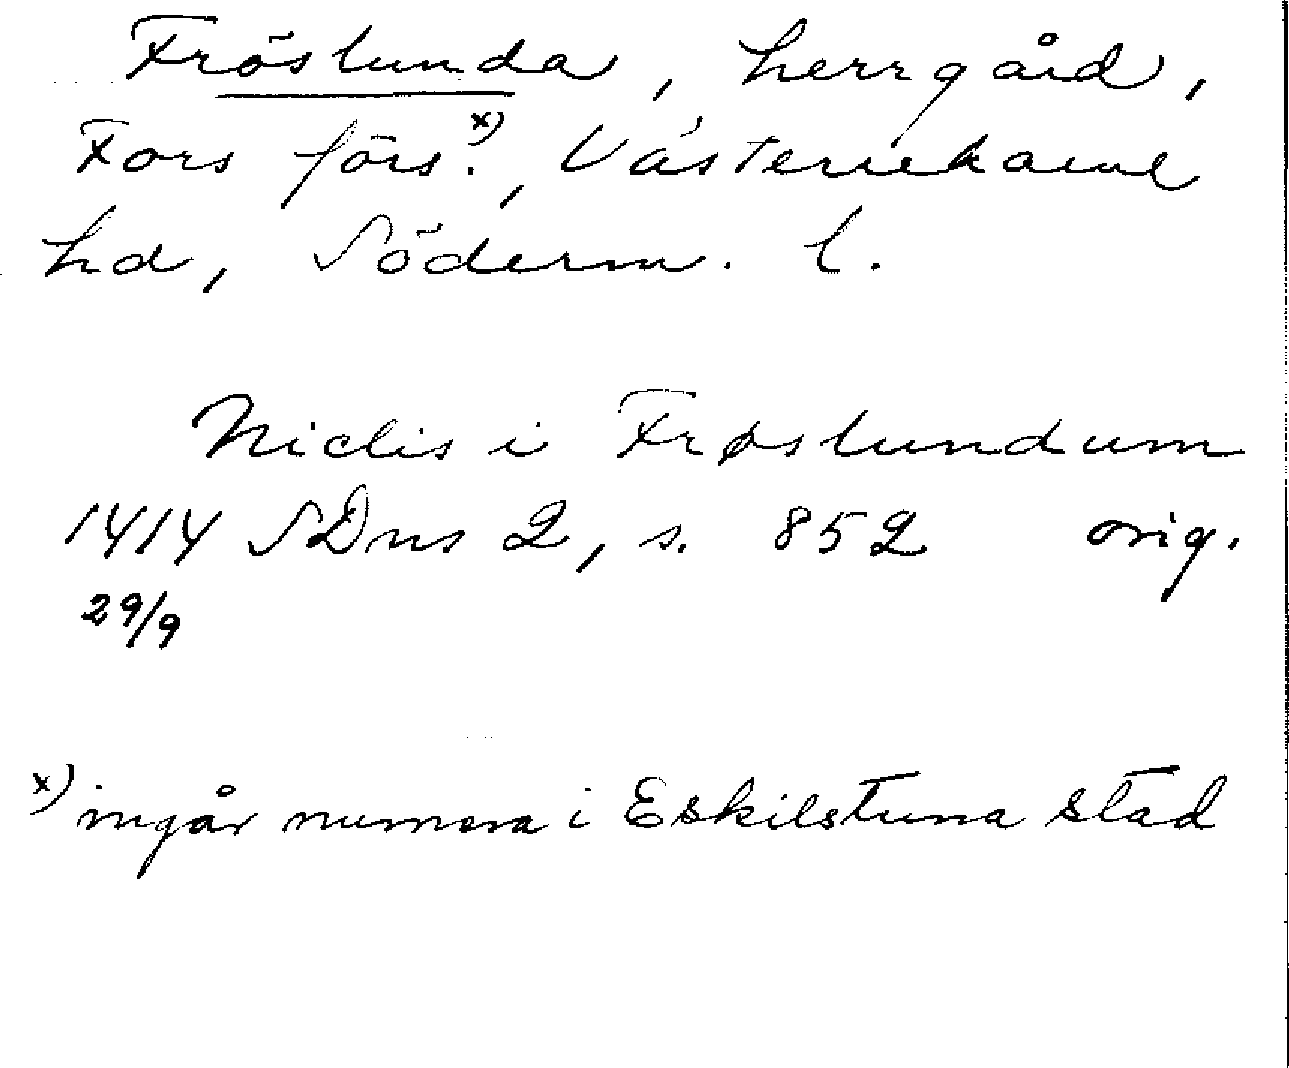 Fröslunda, herrgård,
Fors förs.x), Västerrekarne
hd, Söderm. l.
Niclis i Frøslundum
1414 SDns 2, s. 852 orig.
29/9
x) ingår numera i Eskilstuna stad